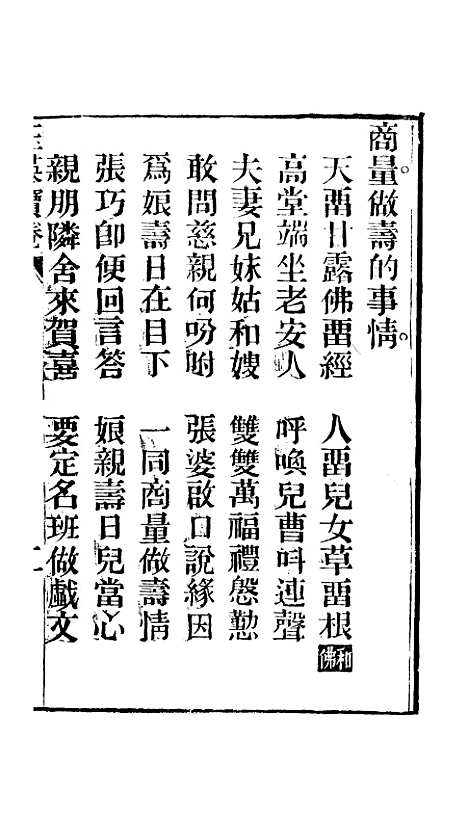 商量。做壽的事情。
天畱甘露佛畱經　人畱兒女草畱根 和佛
高堂端坐老安人　呼喚兒曹呌連聲
夫妻兄妹姑和嫂　雙雙萬福禮慇懃
敢問慈親何吩咐　張婆啟口說緣因
爲娘壽日在目下　一同商量做壽情
張巧卽便回言答　娘親壽日兒當心
親朋隣舍來賀喜　要定名班做戯文
英寶卷